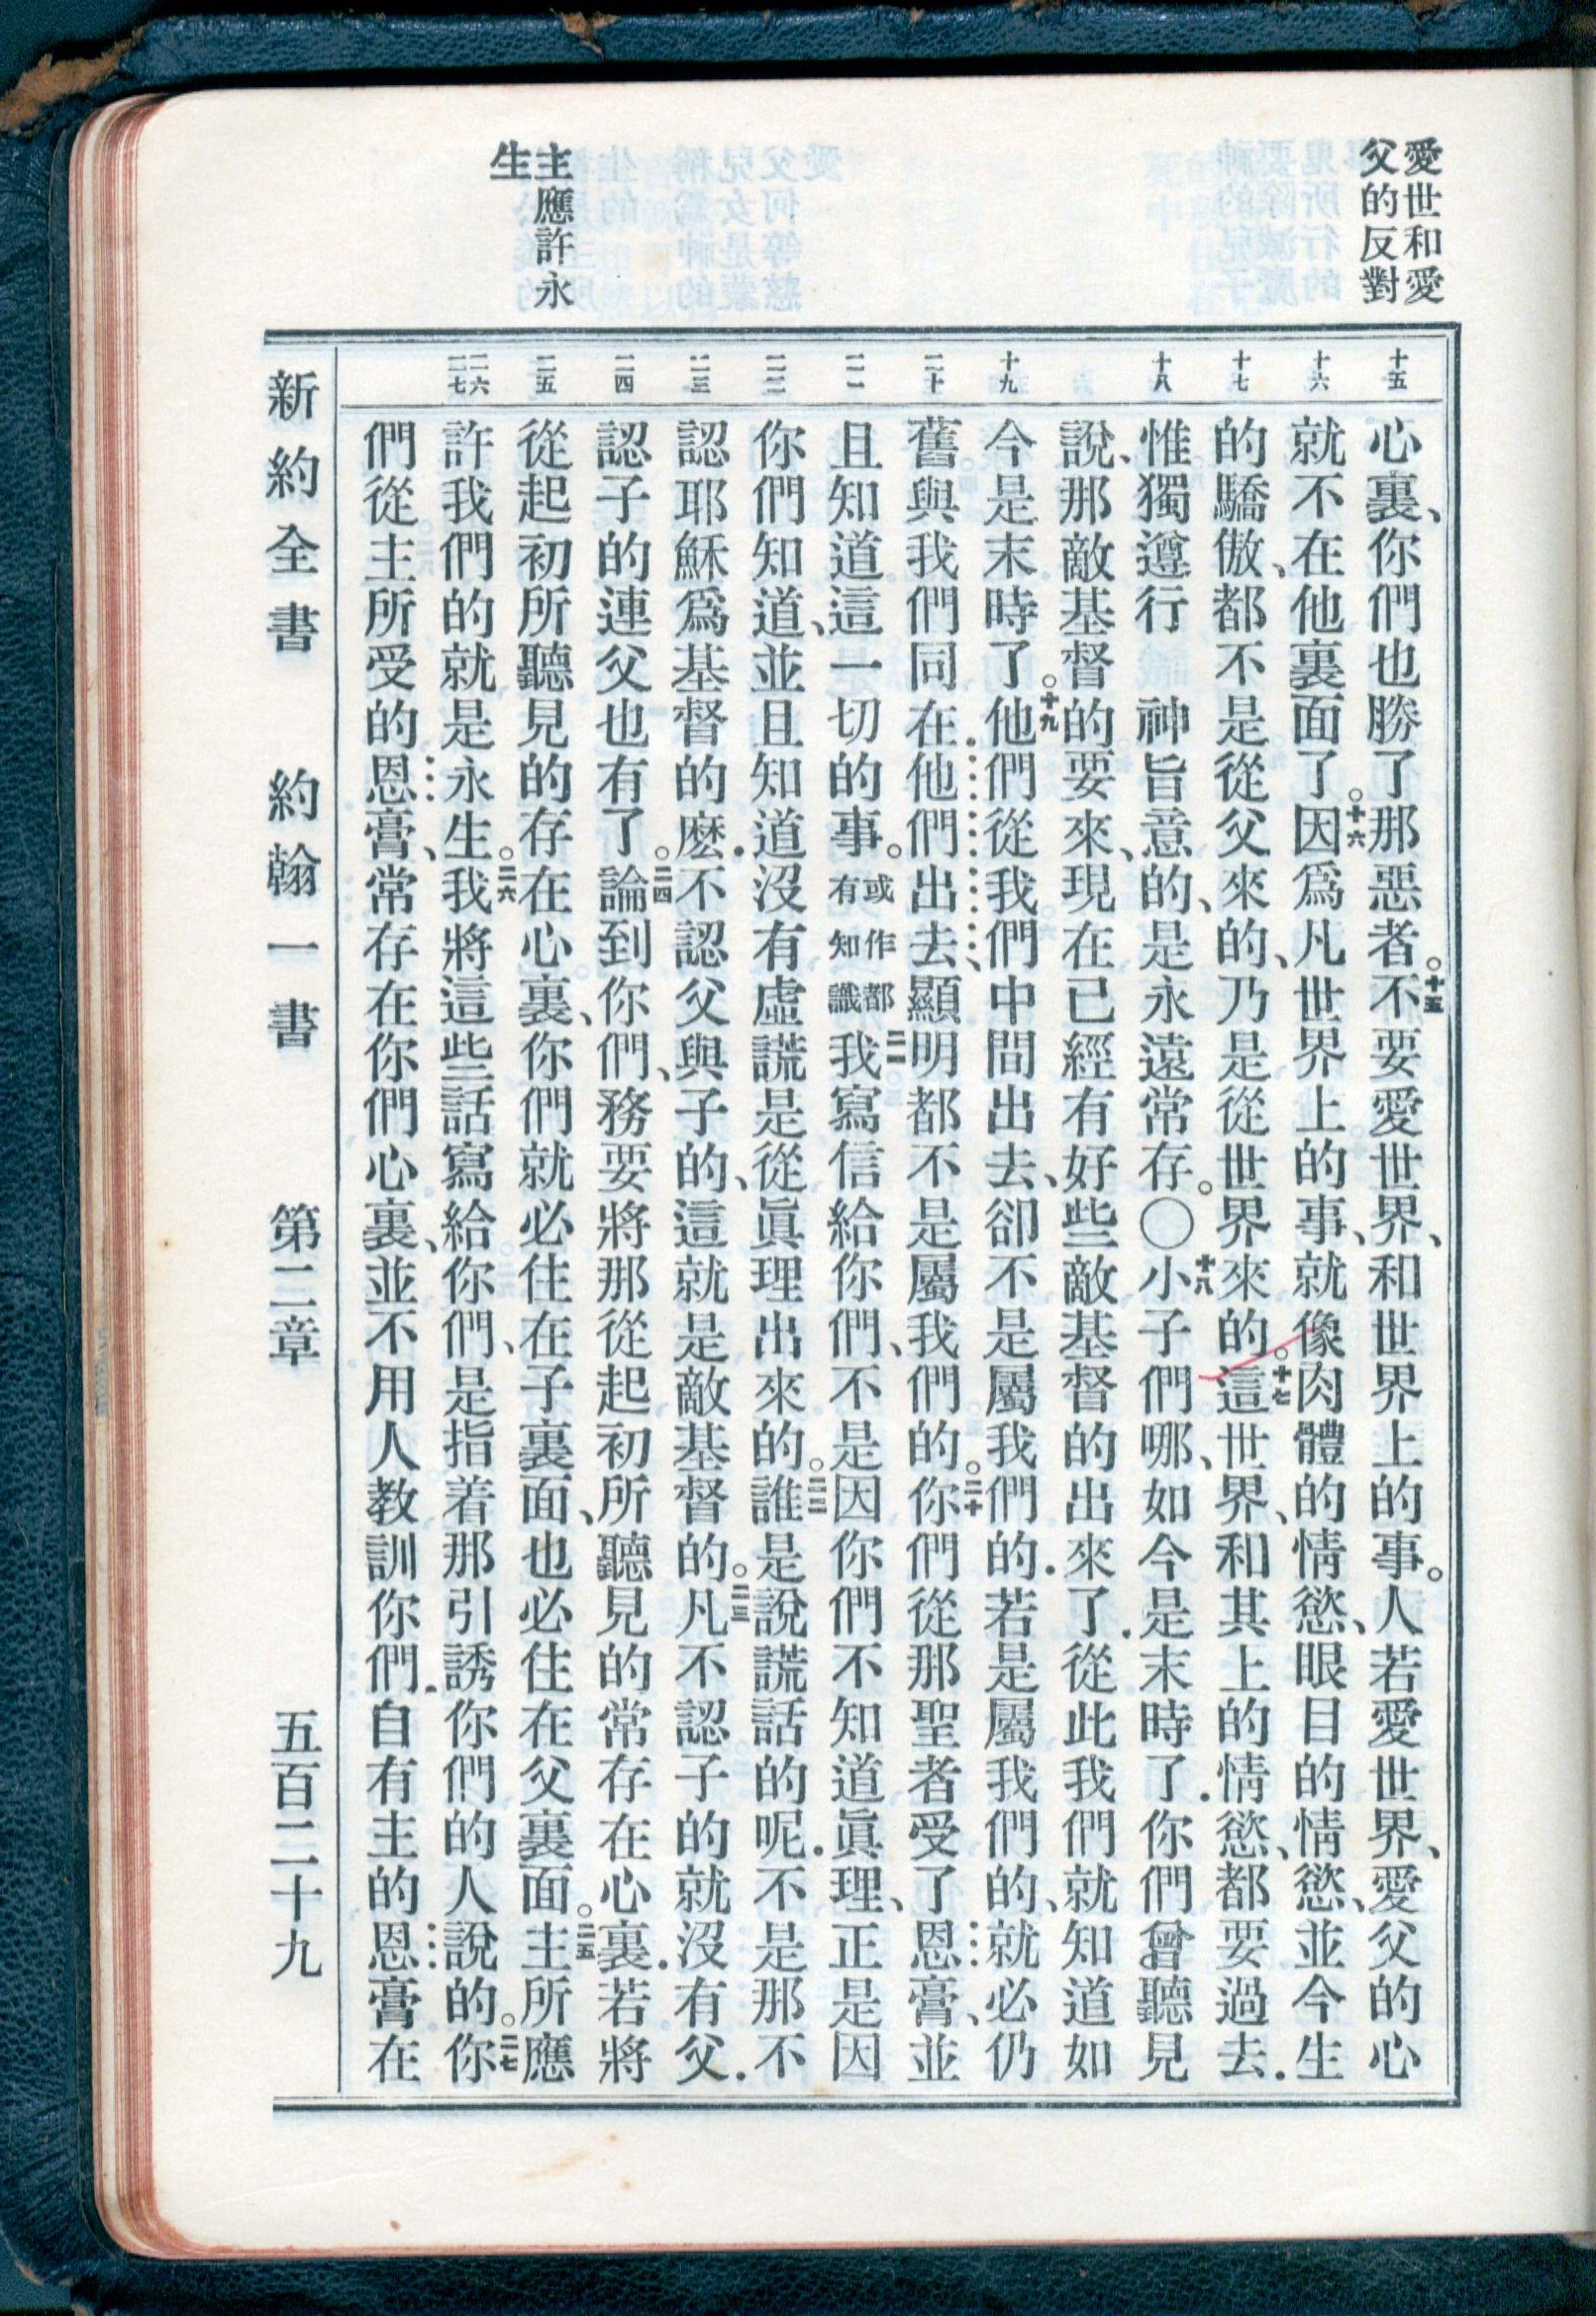 愛世和愛
父的反對
主應許永
生
十五
十六
十七
十八
十九
二十
二一
二二
二三
二四
二五
二六
二七
心裏、你們也勝了那惡者。十五不要愛世界、和世界上的事。人若愛世界、愛父的心
就不在他裏面了。十六因爲凡世界上的事、就像肉體的情慾、眼目的情慾、並今生
的驕傲、都不是從父來的、乃是從世界來的。十七這世界、和其上的情慾、都要過去．
惟獨遵行　神旨意的、是永遠常存。〇十八小子們哪、如今是末時了．你們曾聽見
說、那敵基督的要來、現在已經有好些敵基督的出來了．從此我們就知道如
今是末時了。十九他們從我們中間出去、卻不是屬我們的．若是屬我們的、就必仍
舊與我們同在．他們出去、顯明都不是屬我們的。二十你們從那聖者受了恩膏、並
且知道這一切的事。或作都有知識二一我寫信給你們、不是因你們不知道眞理、正是因
你們知道、並且知道沒有虛謊是從眞理出來的。二二誰是說謊話的呢．不是那不
認耶穌爲基督的麼．不認父與子的、這就是敵基督的。二三凡不認子的就沒有父．
認子的連父也有了。二四論到你們、務要將那從起初所聽見的常存在心裏．若將
從起初所聽見的存在心裏、你們就必住在子裏面、也必住在父裏面。二五主所應
許我們的就是永生。二六我將這些話寫給你們、是指着那引誘你們的人說的。二七你
們從主所受的恩膏、常存在你們心裏、並不用人教訓你們．自有主的恩膏在
新約全書　約翰一書　第二章　五百二十九